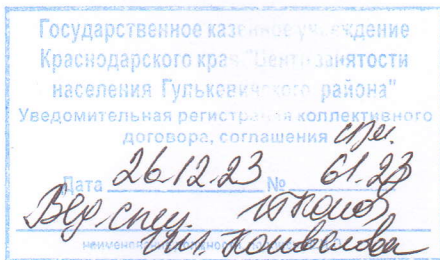 Государственное казенное учреждение
Краснодарского края "Центр занятости
населения Гулькевичского района"
Уведомительная регистрация коллективного
договора, соглашения
Дата 26.12.23 № 61.23
Вед. спец.